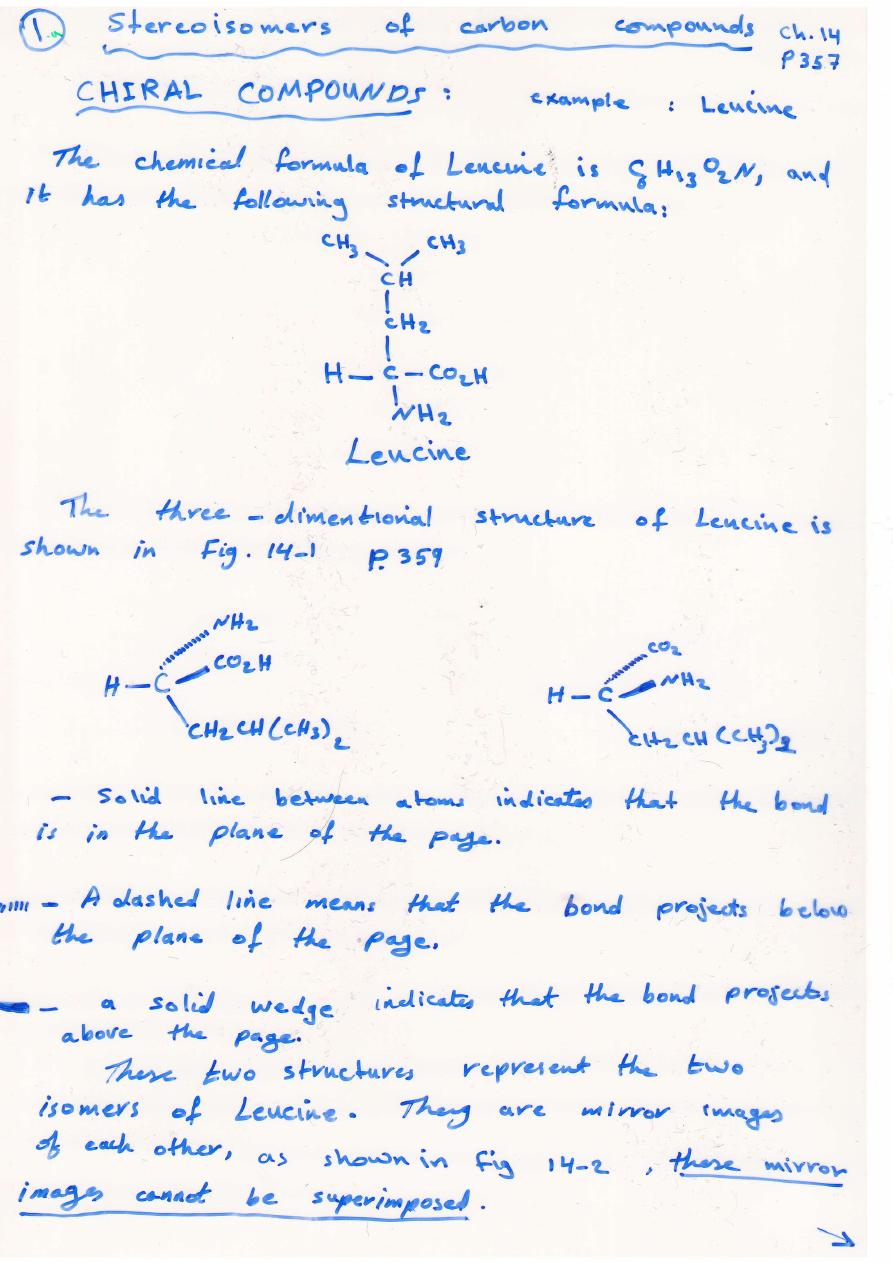 1.a Stereoisomers of carbon compounds Ch.14
P 357
CHIRAL COMPOUNDS: example : Leucine
The chemical formula of Leucine is C6H13O2N, and
it has the following structural formula:
CH3 CH3
CH
CH2
H — C — CO2H
NH2
Leucine
The three - dimentional structure of Leucine is
shown in Fig. 14-1 P. 359
NH2
CO2H
H — C
CH2CH(CH3)2
CO2
NH2
H — C
CH2CH(CH3)2
- Solid line between atoms indicates that the bond
is in the plane of the page.
- A dashed line means that the bond projects below
the plane of the page.
- a solid wedge indicates that the bond projects
above the page.
These two structures represent the two
isomers of Leucine. They are mirror images
of each other, as shown in fig 14-2, these mirror
images cannot be superimposed.